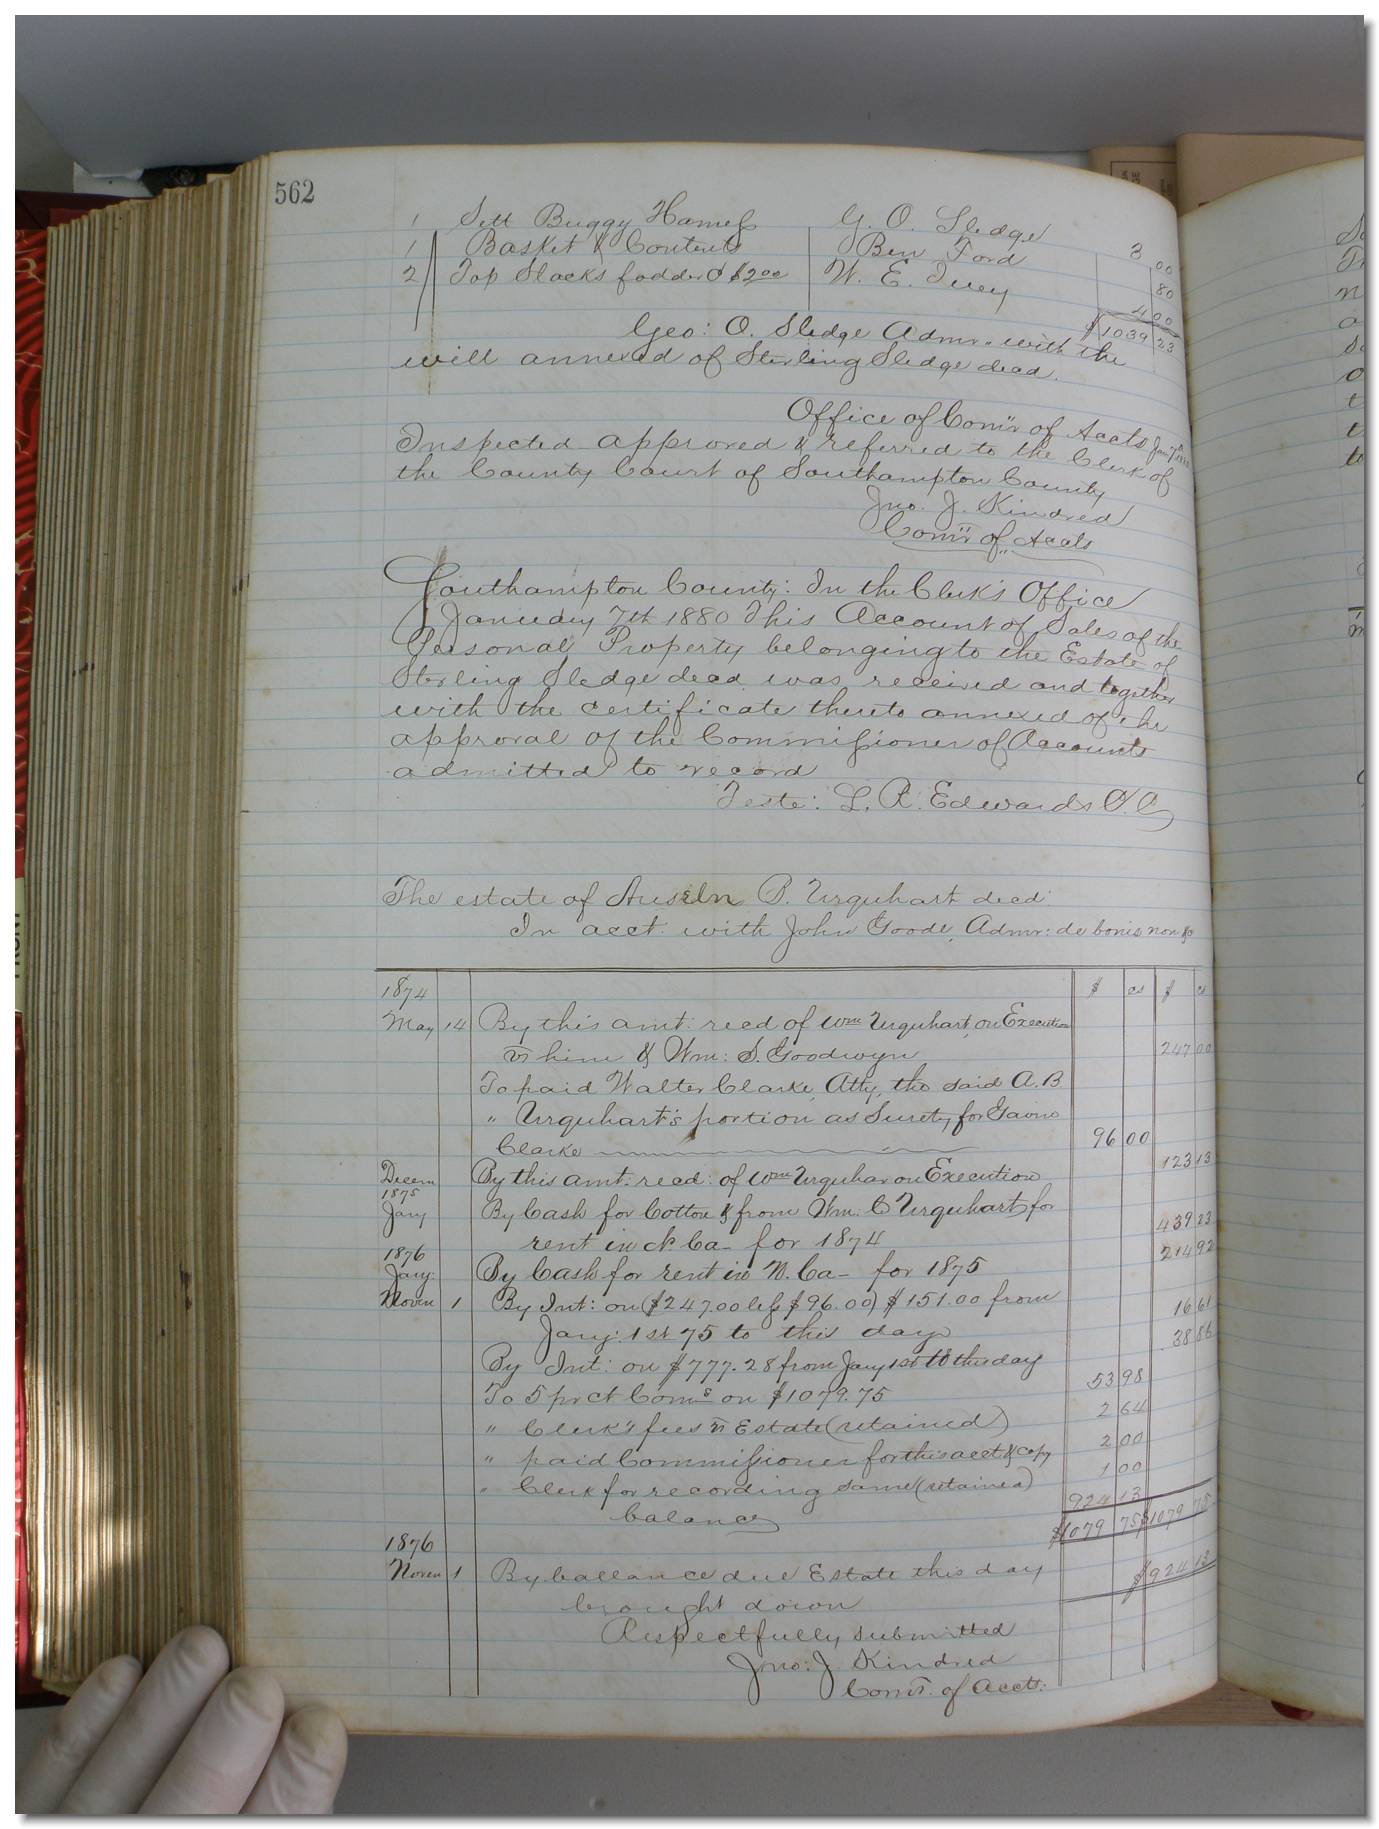 562
1 Sett Buggy Harness G. O. Sledge 3 00
1 Basket & Contents Ben Ford 80
2 Top Stacks fodder @ $2 00 W. E. Ivey 4 00
$1039 23
Geo: O. Sledge Admr. with the
will annexed of Sterling Sledge decd.
Office of Comr of Accts Jany 7th
Inspected approved & referred to the Clerk of
the County Court of Southampton County
Jno. J. Kindred
Comr of Accts
Southampton County: In the Clerk's Office
January 7th 1880 This Account of Sales of the
Personal Property belonging to the Estate of
Sterling Sledge decd was received and together
with the certificate thereto annexed of the
approval of the Commissioner of Accounts
admitted to record
Teste: L. R. Edwards C.C.
The estate of P. Urquhart decd:
In acct. with John Goode, Admr: de bonis non &c
1874 $ cs $ cs
May 14 By this amt: recd of Wm Urquhart, on Execution
vs him & Wm: S. Goodwyn 247 00
To paid Walter Clarke, Atty, the said A. B
" Urquhart's portion as Surety for
Clarke 96 00
Decem By this amt: recd: of Wm Urquhar on Execution 123 13
1875
Jany By Cash for Cotton & from Wm. C Urquhart for
rent in N. Ca- for 1874 439 23
1876
Jany: By Cash for rent in N. Ca- for 1875 214 92
Novem 1 By Int: on ($247.00 less $96.00) $151.00 from
Jany: 1st 75 to this day 16 61
By Int: on $777.28 from Jany 1st to this day 38 86
To 5 pr ct Coms on $1079.75 53 98
" Clerk's fees vs Estate (retained) 2 64
" paid Commissioner for this acct & copy 2 00
" Clerk for recording same (retained) 1 00
balance 924 13
$1079 75 $1079 75
1876
Novem 1 By ballance due Estate this day $924 13
brought down
Respectfully submitted
Jno: J Kindred
Comr. of Accts: